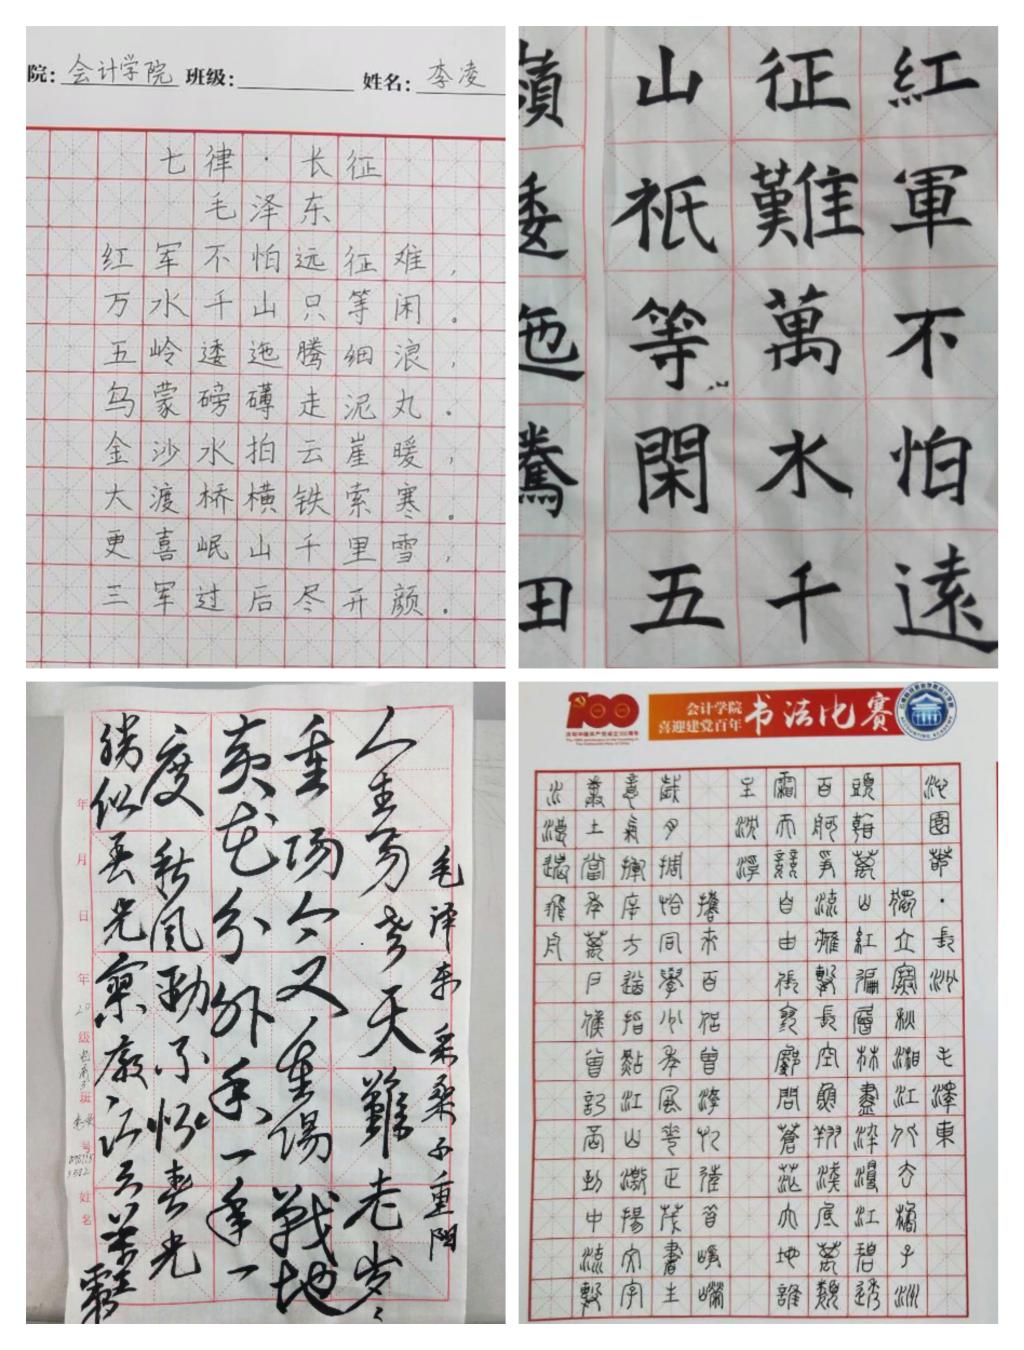 院：会计学院 班级： 姓名：李凌
七律·长征
毛泽东
红军不怕远征难，
万水千山只等闲。
五岭逶迤腾细浪，
乌蒙磅礴走泥丸。
金沙水拍云崖暖，
大渡桥横铁索寒。
更喜岷山千里雪，
三军过后尽开颜。
紅軍不怕遠
征難萬水千
山祇等閑五
嶺逶迤騰
毛泽东 采桑子 重阳
人生易老天難老岁岁
重阳今又重陽戰地
黄花分外香一年一
度秋风劲不似春光
勝似春光寥廓江天萬
霜
年 月 日
年 级 班
号
姓名
100
会计学院
喜迎建党百年
书法比赛
沁園春·長沙
毛澤東
獨立寒秋湘江北去橘子洲
頭看萬山紅遍層林盡染漫江碧透
百舸爭流鷹擊長空魚翔淺底萬類
霜天競自由悵寥廓問蒼茫大地誰
主沈浮
攜來百侶曾游憶往昔崢嶸
歲月稠恰同學少年風華正茂書生
意氣揮斥方遒指點江山激揚文字
糞土當年萬戶侯曾記否到中流擊
水浪遏飛舟